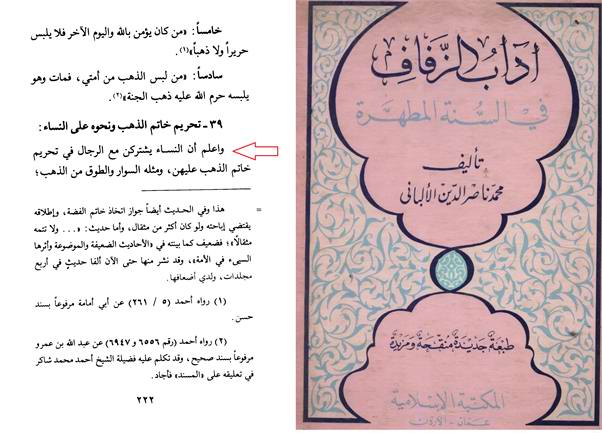 خامساً: «من كان يؤمن بالله واليوم الآخر فلا يلبس
حريراً ولا ذهباً»(١).
سادساً: «من لبس الذهب من أمتي، فمات وهو
يلبسه حرم الله عليه ذهب الجنة»(٢).
٣٩ ـ تحريم خاتم الذهب ونحوه على النساء:
واعلم أن النساء يشتركن مع الرجال في تحريم
خاتم الذهب عليهن، ومثله السوار والطوق من الذهب؛
= هذا وفي الحديث أيضاً جواز اتخاذ خاتم الفضة، وإطلاقه
يقتضي إباحته ولو كان أكثر من مثقال، وأما حديث: «... ولا تتمه
مثقالاً»؛ فضعيف كما بينته في «الأحاديث الضعيفة والموضوعة وأثرها
السيىء في الأمة»، وقد نشر منها حتى الآن ألفا حديثٍ في أربع
مجلدات، ولدي أضعافها.
(١) رواه أحمد (٥ / ٢٦١) عن أبي أمامة مرفوعاً بسند
حسن.
(٢) رواه أحمد (رقم ٦٥٥٦ و ٦٩٤٧) عن عبد الله بن عمرو
مرفوعاً بسند صحيح، وقد تكلم عليه فضيلة الشيخ أحمد محمد شاكر
في تعليقه على «المسند» فأجاد.
٢٢٢
آداب الزفاف
في السنة المطهرة
تأليف
محمد ناصر الدين الألباني
طبعة جديدة منقحة ومزيدة
المكتبة الإسلامية
عمان - الأردن